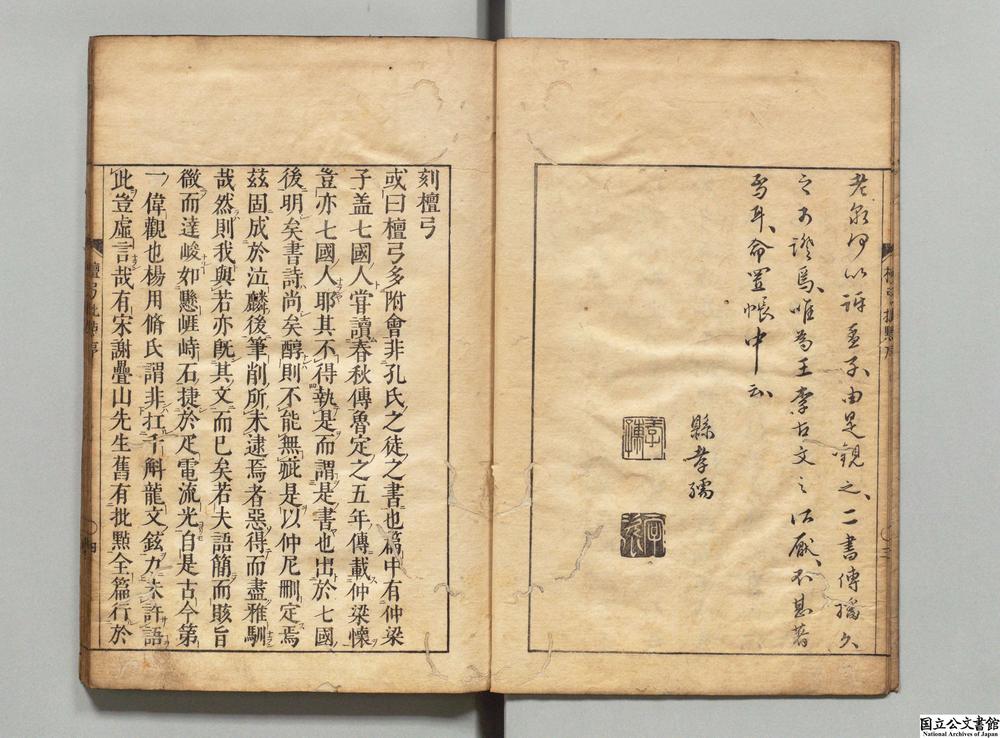 老泉何以評孟子由是観之二書傳播久
之可證焉唯為王李古文之所厭不甚著
焉耳命置帳中云
縣孝孺
刻檀弓
或曰檀弓多附會非孔氏之徒之書也篇中有仲梁
子盖七國人甞讀春秋傳魯定之五年傳載仲梁懷
豈亦七國人耶其不得執是而謂是書也出於七國
後明矣書詩尚矣醇則不能無疵是以仲尼刪定焉
茲固成於泣麟後筆削所未逮焉者惡得而盡雅馴
哉然則我與若亦旣其文而已矣若夫語簡而賅旨
微而達峻如懸崕峙石捷於疋電流光自是古今第
一偉觀也楊用脩氏謂非扛千斛龍文鉉力未許語
此豈虛言哉有宋謝疊山先生舊有批㸃全篇行於
國立公文書館
National Archives of Japan